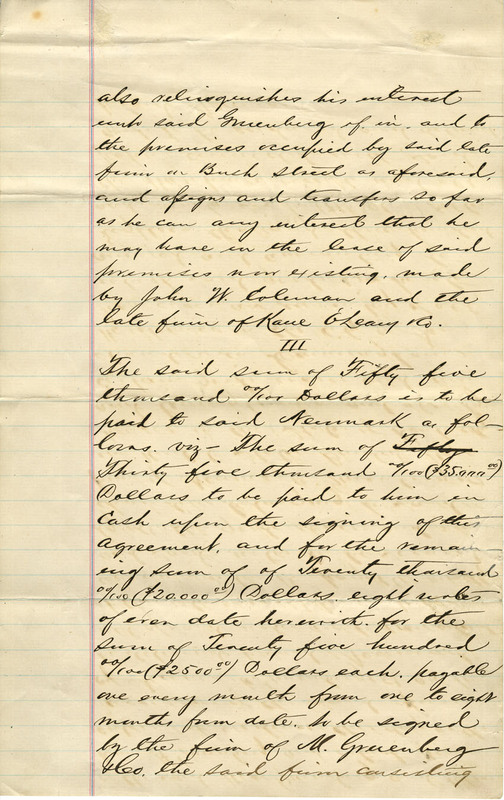 also relinquishes his interest
unto said Gruenberg of, in, and to
the premises occupied by said late
firm on Bush street as aforesaid,
and assigns and transfers so far
as he can any interest that he
may have in the lease of said
premises now existing, made
by John W. Coleman and the
late firm of Kane O'Leary & Co.
III
The said sum of Fifty five
thousand 00/100 Dollars is to be
paid to said Neumark as fol-
lows. viz - The sum of Fifty
Thirty five thousand 00/100 ($35.000 00)
Dollars to be paid to him in
Cash upon the signing of this
agreement, and for the remain
ing sum of of Twenty thousand
00/100 ($20.000 00) Dollars. eight notes
of even date herewith. for the
sum of Twenty five hundred
00/100 ($2500 00) Dollars each. payable
one every month from one to eight
months from date. to be signed
by the firm of M. Gruenberg
& Co. the said firm consisting